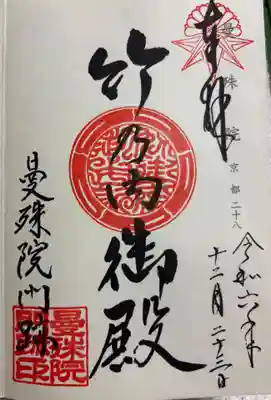 奉拝
曼殊院 京都二十八
令和六年
十二月二十三日
竹乃内御殿
曼殊院門跡
曼殊院
門跡印